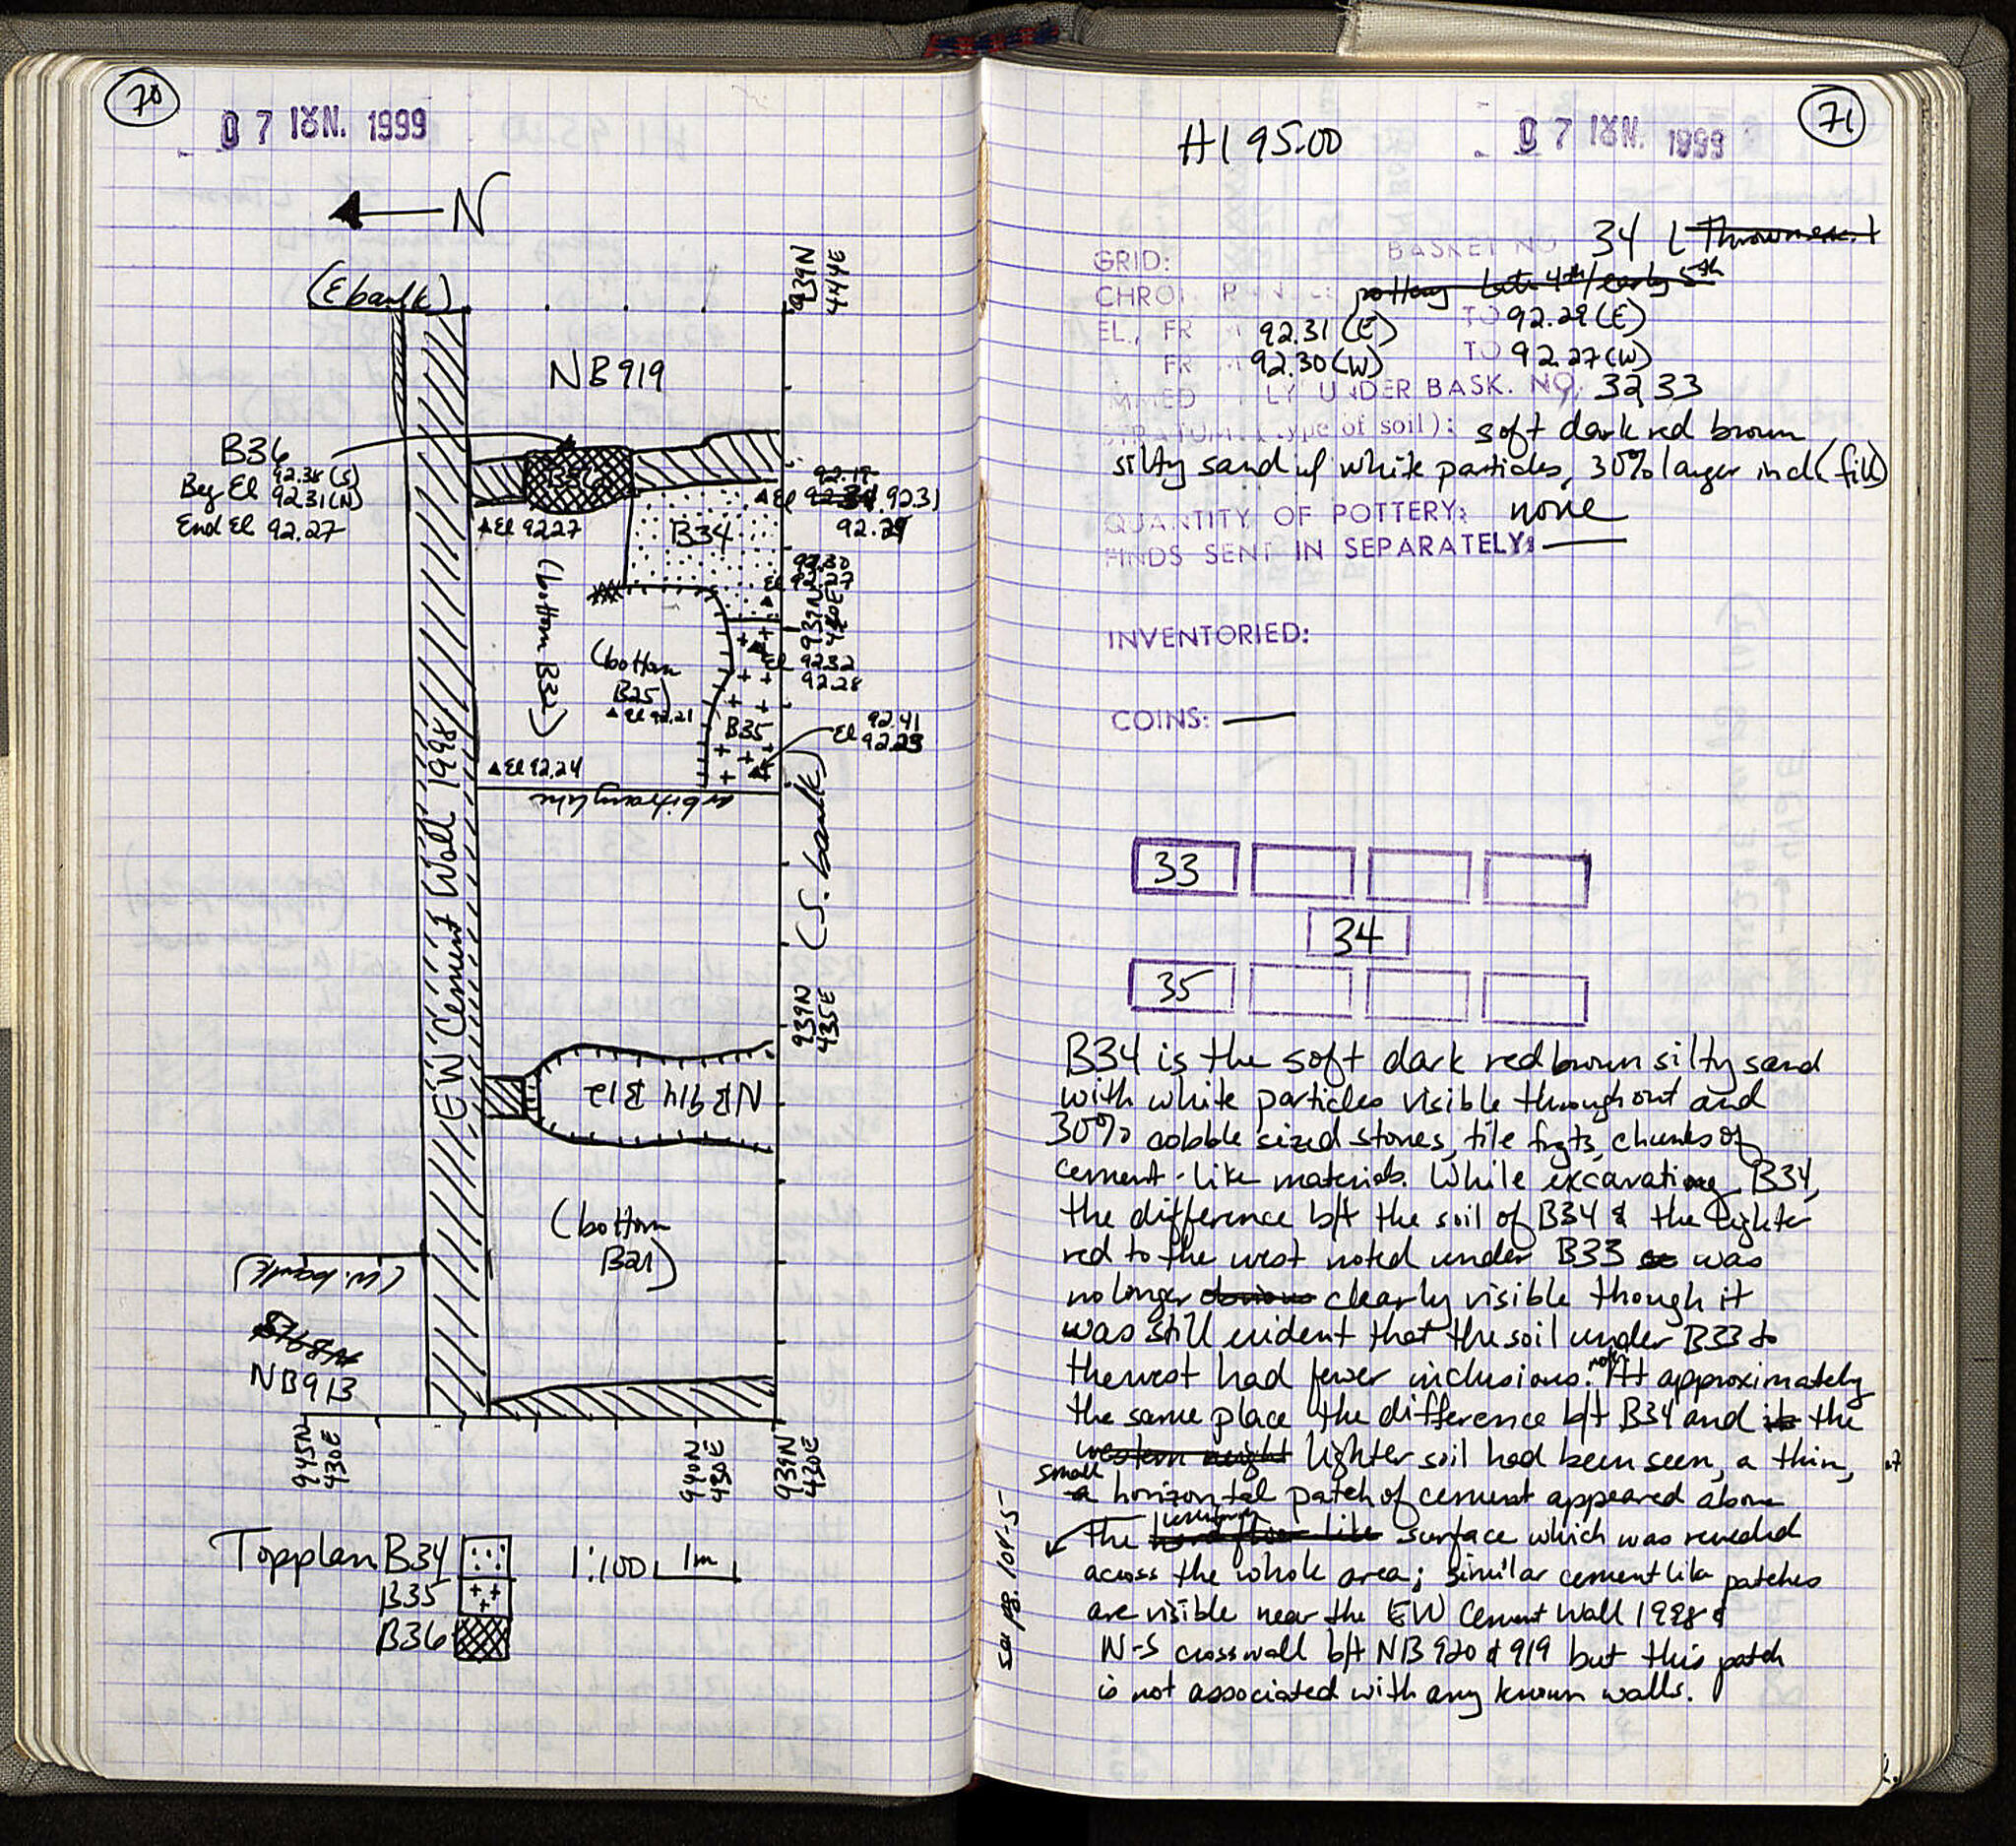 70
07 ΙΟΥΝ. 1999
N
(E baulk)
939N
444E
NB919
B36
Beg El 92.38 (S)
92.31 (N)
End El 92.27
B36
92.19
El 92.31
92.29
El 92.27
B34
92.30
El 92.27
939N
440E
(bottom B32)
(bottom
B25)
El 92.21
El 92.32
92.28
B35
92.41
El 92.23
El 92.24
arbitrary line
(S. baulk)
EW Cement Wall 1998
939N
435E
NB914 B12
(bottom
B21)
(W. baulk)
NB913
945N
430E
940N
430E
939N
430E
Topplan B34
B35
B36
1:100 1m
71
H195.00
07 ΙΟΥΝ. 1999
BASKET NO 34 L Thrown out
GRID:
CHRON. RANGE: pottery late 4th/early 5th
EL., FROM 92.31 (E) TO 92.29 (E)
FROM 92.30 (W) TO 92.27 (W)
IMMEDIATELY UNDER BASK. NO. 32, 33
STRATUM (type of soil): soft dark red brown
silty sand w/ white particles, 30% larger incl (fill)
QUANTITY OF POTTERY: none
FINDS SENT IN SEPARATELY: —
INVENTORIED:
COINS: —
33
34
35
B34 is the soft dark red brown silty sand
with white particles visible throughout and
30% cobble sized stones, tile frgts, chunks of
cement-like materials. While excavating B34,
the difference b/t the soil of B34 & the lighter
red to the west noted under B33 was
no longer obvious clearly visible though it
was still evident that the soil under B33 to
the west had fewer inclusions. At approximately
the same place the difference b/t B34 and its the
western lighter soil had been seen, a thin,
small
a horizontal patch of cement appeared above
the hard floor like surface which was revealed
across the whole area; similar cement like patches
are visible near the EW Cement Wall 1998 &
N-S crosswall b/t NB 920 & 919 but this patch
is not associated with any known walls.
see pg. 104-5